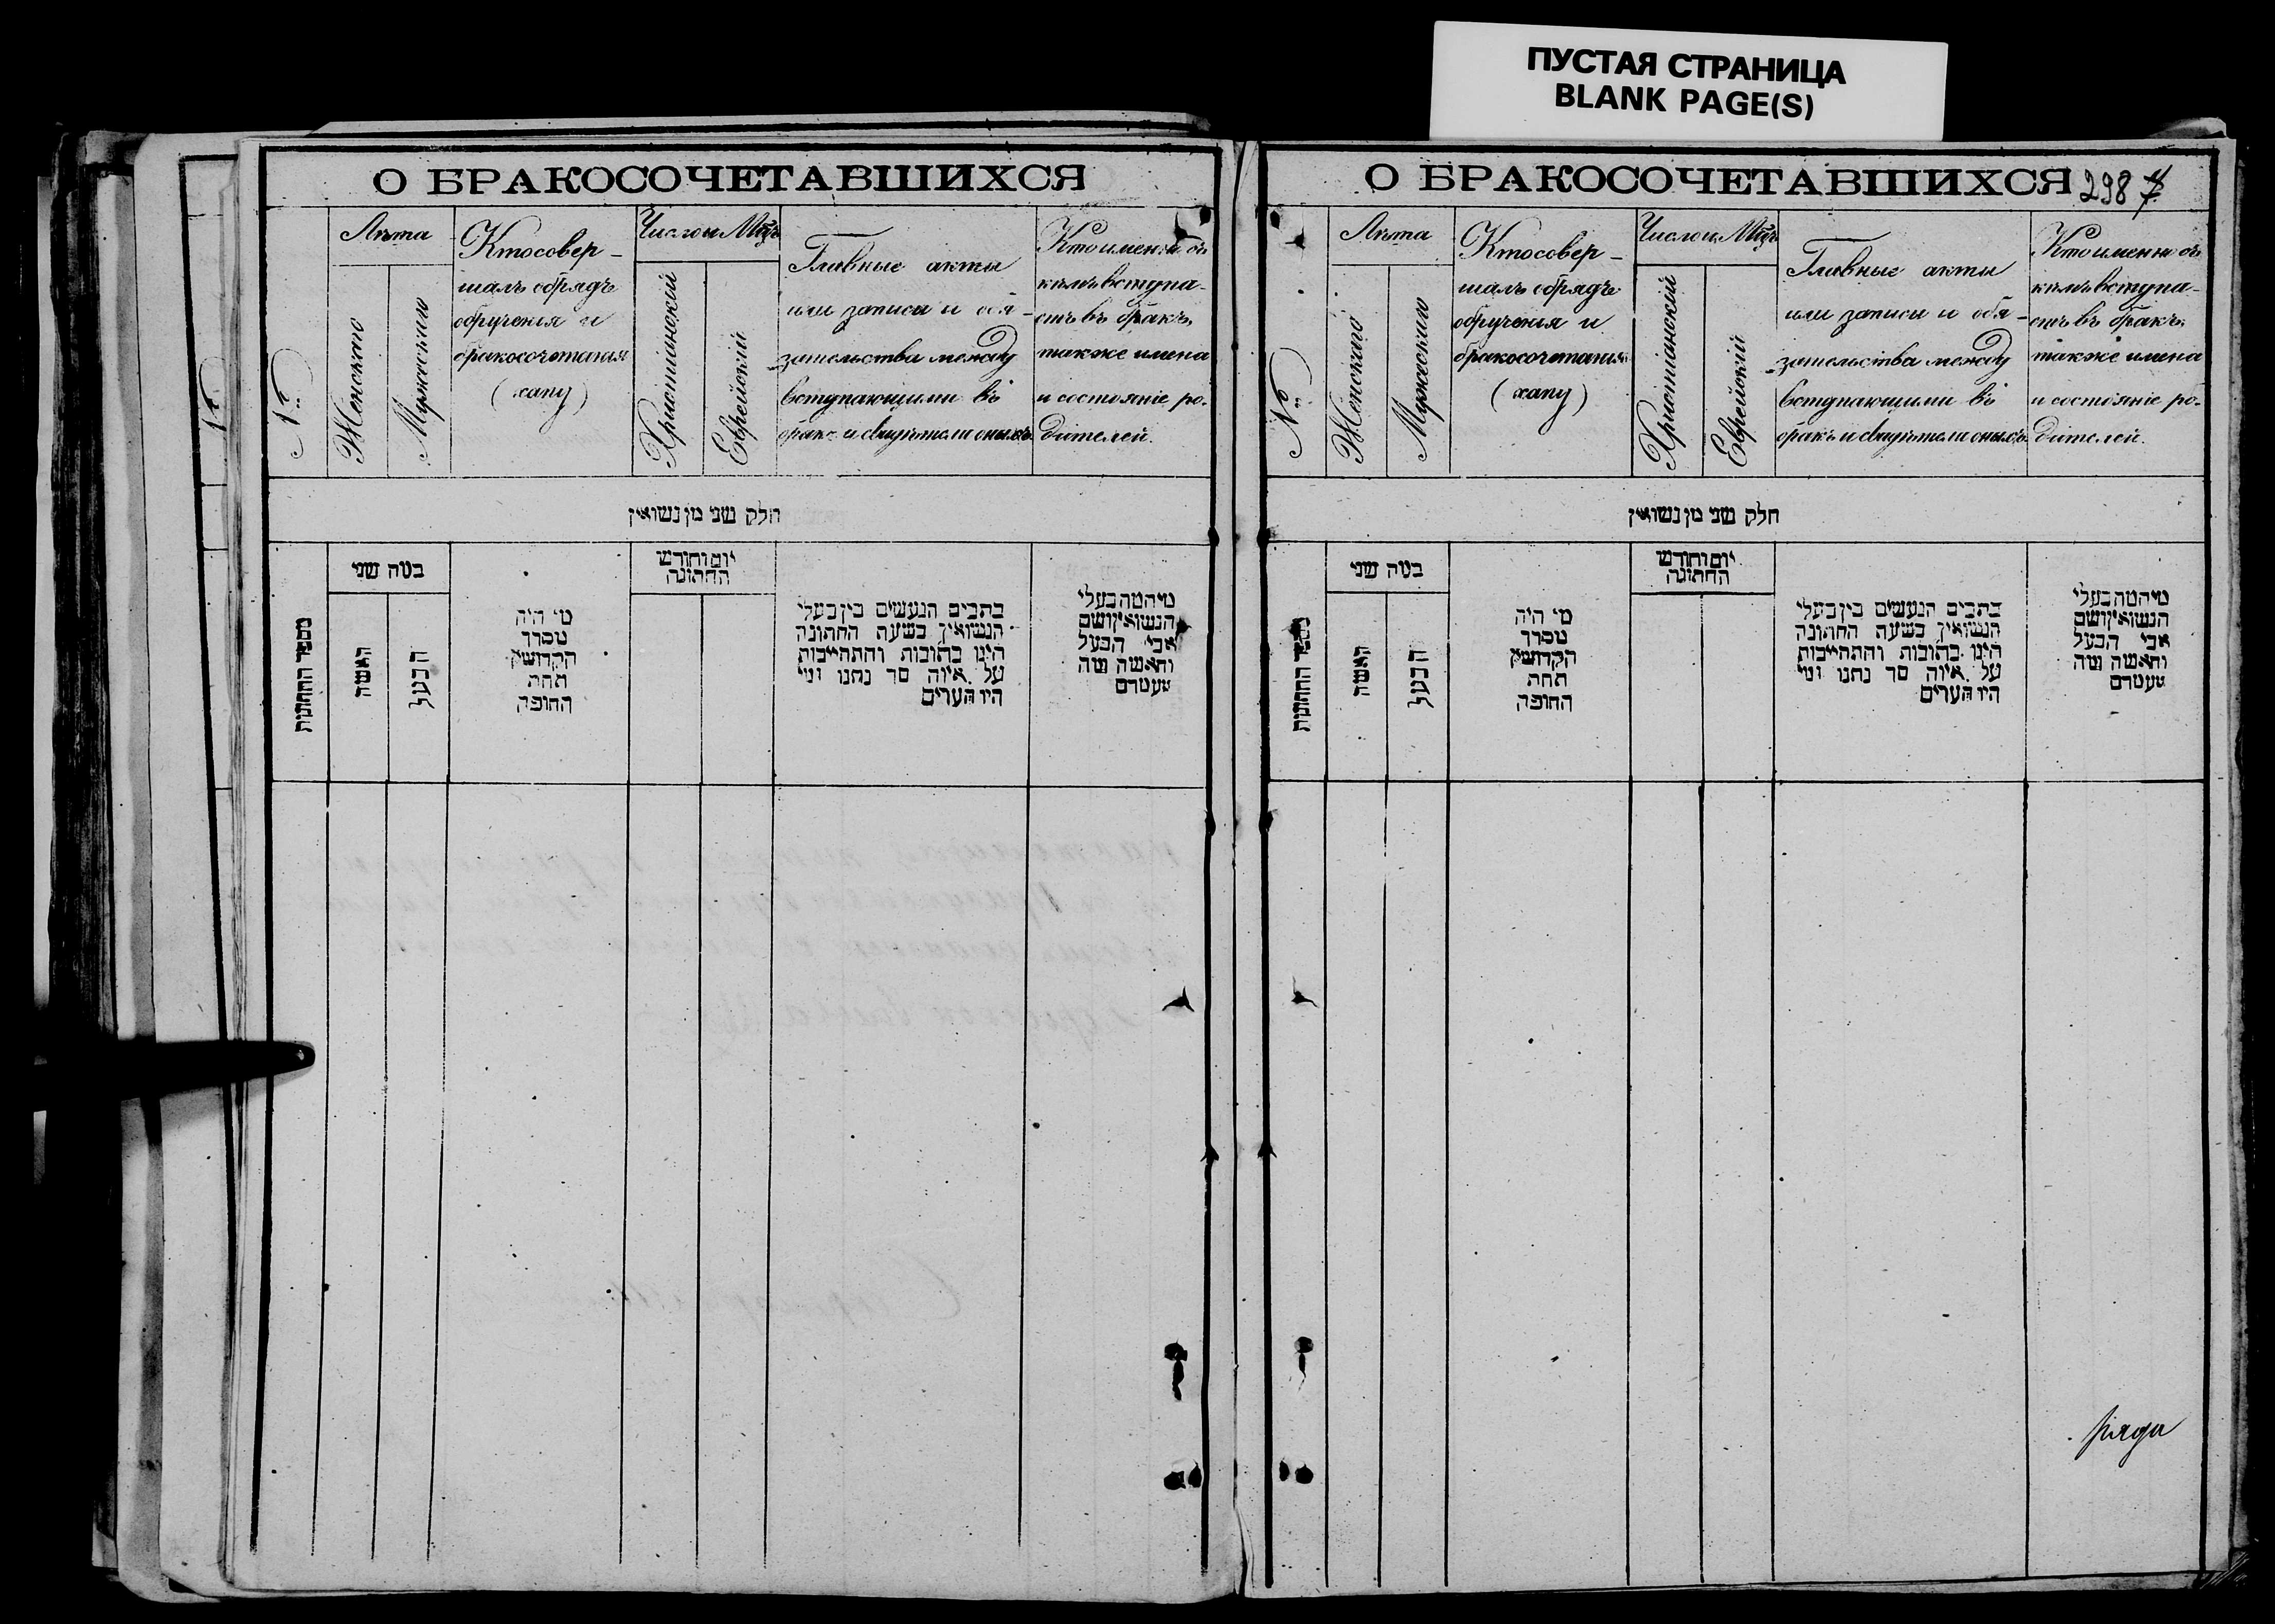 ПУСТАЯ СТРАНИЦА
BLANK PAGE(S)
О БРАКОСОЧЕТАВШИХСЯ
№
Лѣта
Женскаго
Мужескаго
Кто совер-
шалъ обрядъ
обрученія и
бракосочетанія
(хапу)
Число и Мѣц.
Христіанскій
Еврейскій
Главные акты
или записи и обя-
зательства между
вступающими въ
бракъ и свидѣтели оныхъ
Кто именно съ
кѣмъ вступа-
етъ въ бракъ,
также имена
и состояніе ро-
дителей.
חלק שני מן נשואין
מספר החתונות
בטה שני
האשה
הבעל
מי היה
מסדר
הקדושין
תחת
החופה
יום וחודש
החתונה
כתבים הנעשים בין בעלי
הנשואין בשעת החתונה
היינו כתובות והתחייבות
על איזה סך נתנו ומי
היו העדים
מי המה בעלי
הנשואין ושם
אבי הבעל
והאשה ומה
מעמדם
О БРАКОСОЧЕТАВШИХСЯ 298
№
Лѣта
Женскаго
Мужескаго
Кто совер-
шалъ обрядъ
обрученія и
бракосочетанія
(хапу)
Число и Мѣц.
Христіанскій
Еврейскій
Главные акты
или записи и обя-
зательства между
вступающими въ
бракъ и свидѣтели оныхъ
Кто именно съ
кѣмъ вступа-
етъ въ бракъ,
также имена
и состояніе ро-
дителей.
חלק שני מן נשואין
מספר החתונות
בטה שני
האשה
הבעל
מי היה
מסדר
הקדושין
תחת
החופה
יום וחודש
החתונה
כתבים הנעשים בין בעלי
הנשואין בשעת החתונה
היינו כתובות והתחייבות
על איזה סך נתנו ומי
היו העדים
מי המה בעלי
הנשואין ושם
אבי הבעל
והאשה ומה
מעמדם